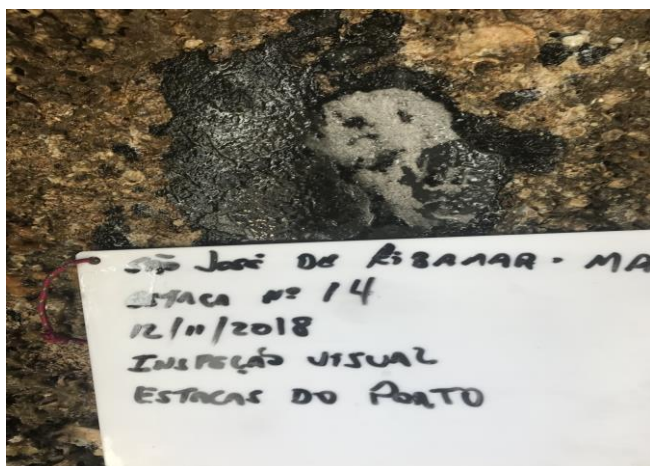 São José de Ribamar - MA
Estaca nº 14
12/11/2018
Inspeção visual
Estacas do Porto